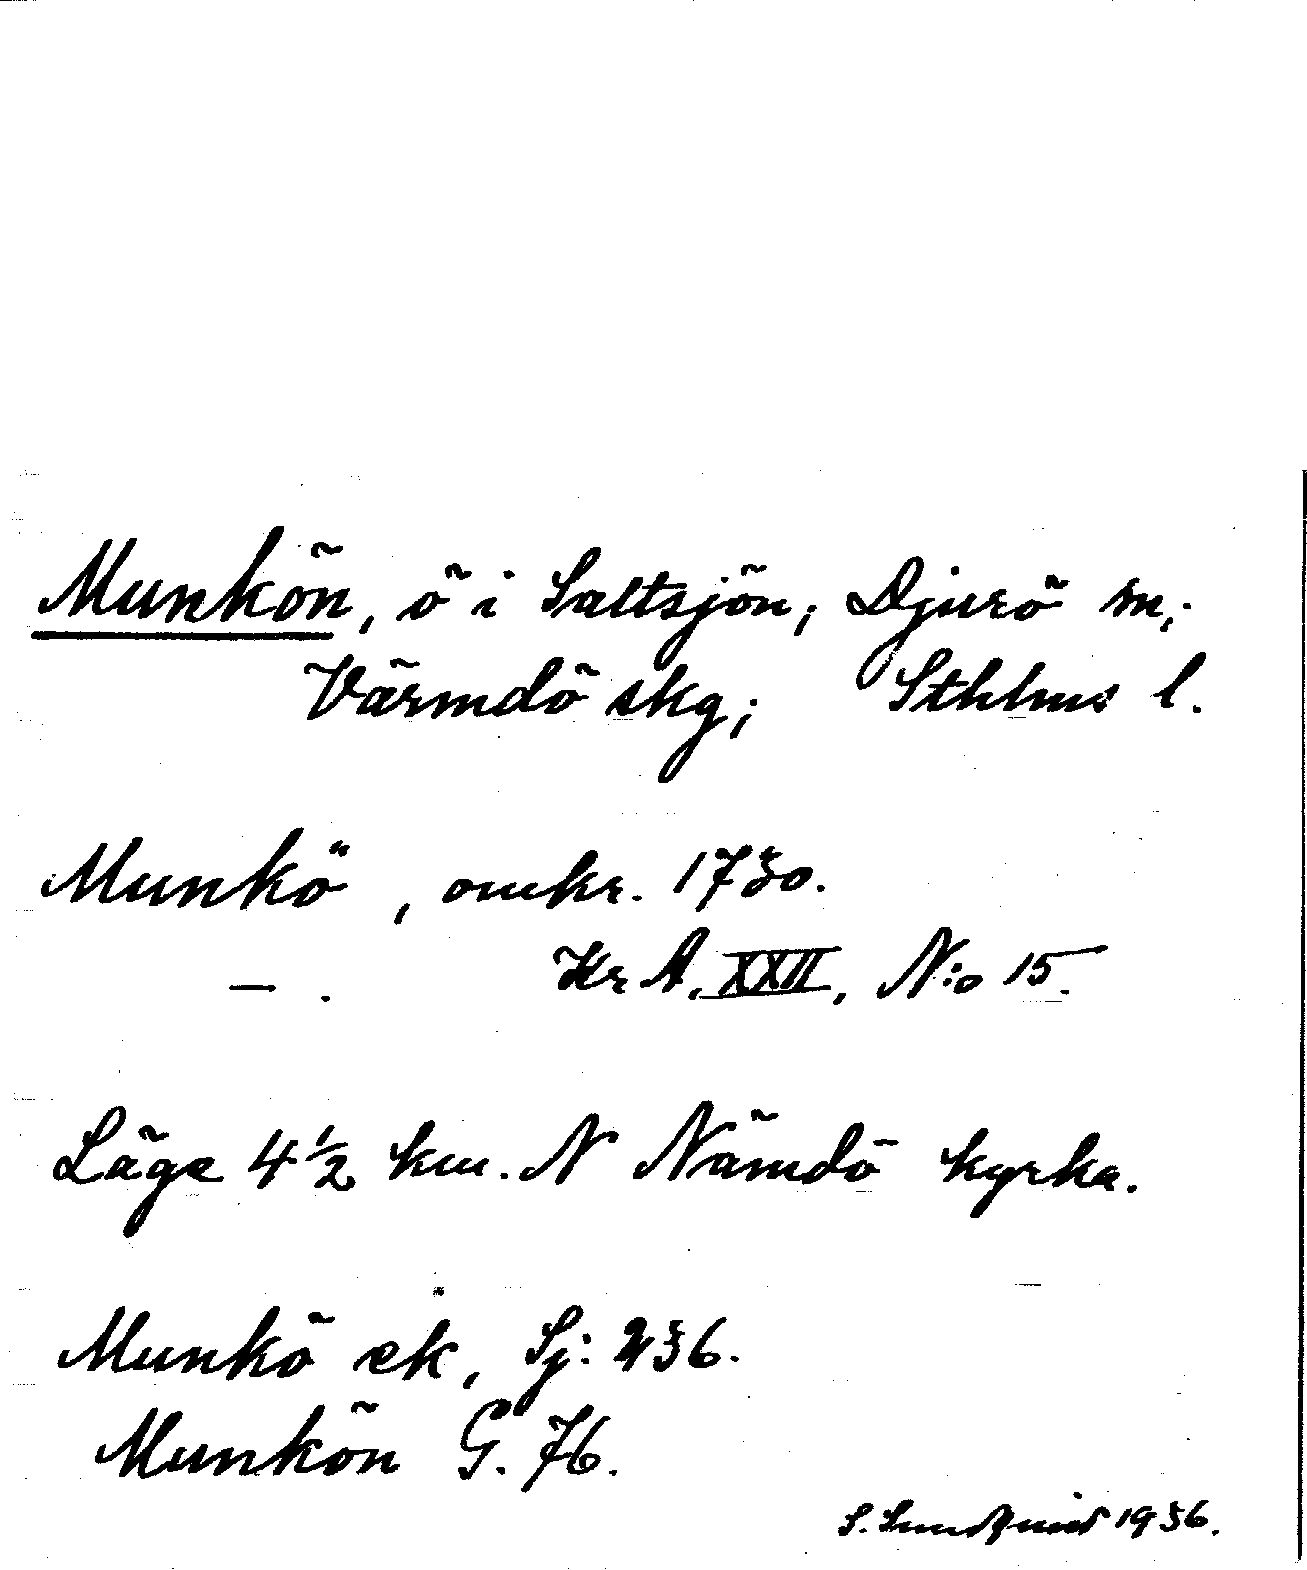 Munkön, ö i Saltsjön; Djurö sn,
Värmdö skg; Sthlms l.
Munkö, omkr. 1730.
— . Kr A. XXII, N:o 15.
Läge 4 1/2 km. N Nämdö kyrka.
Munkö ek, Sj: 236.
Munkön G. 76.
S. Sundquist 1936.